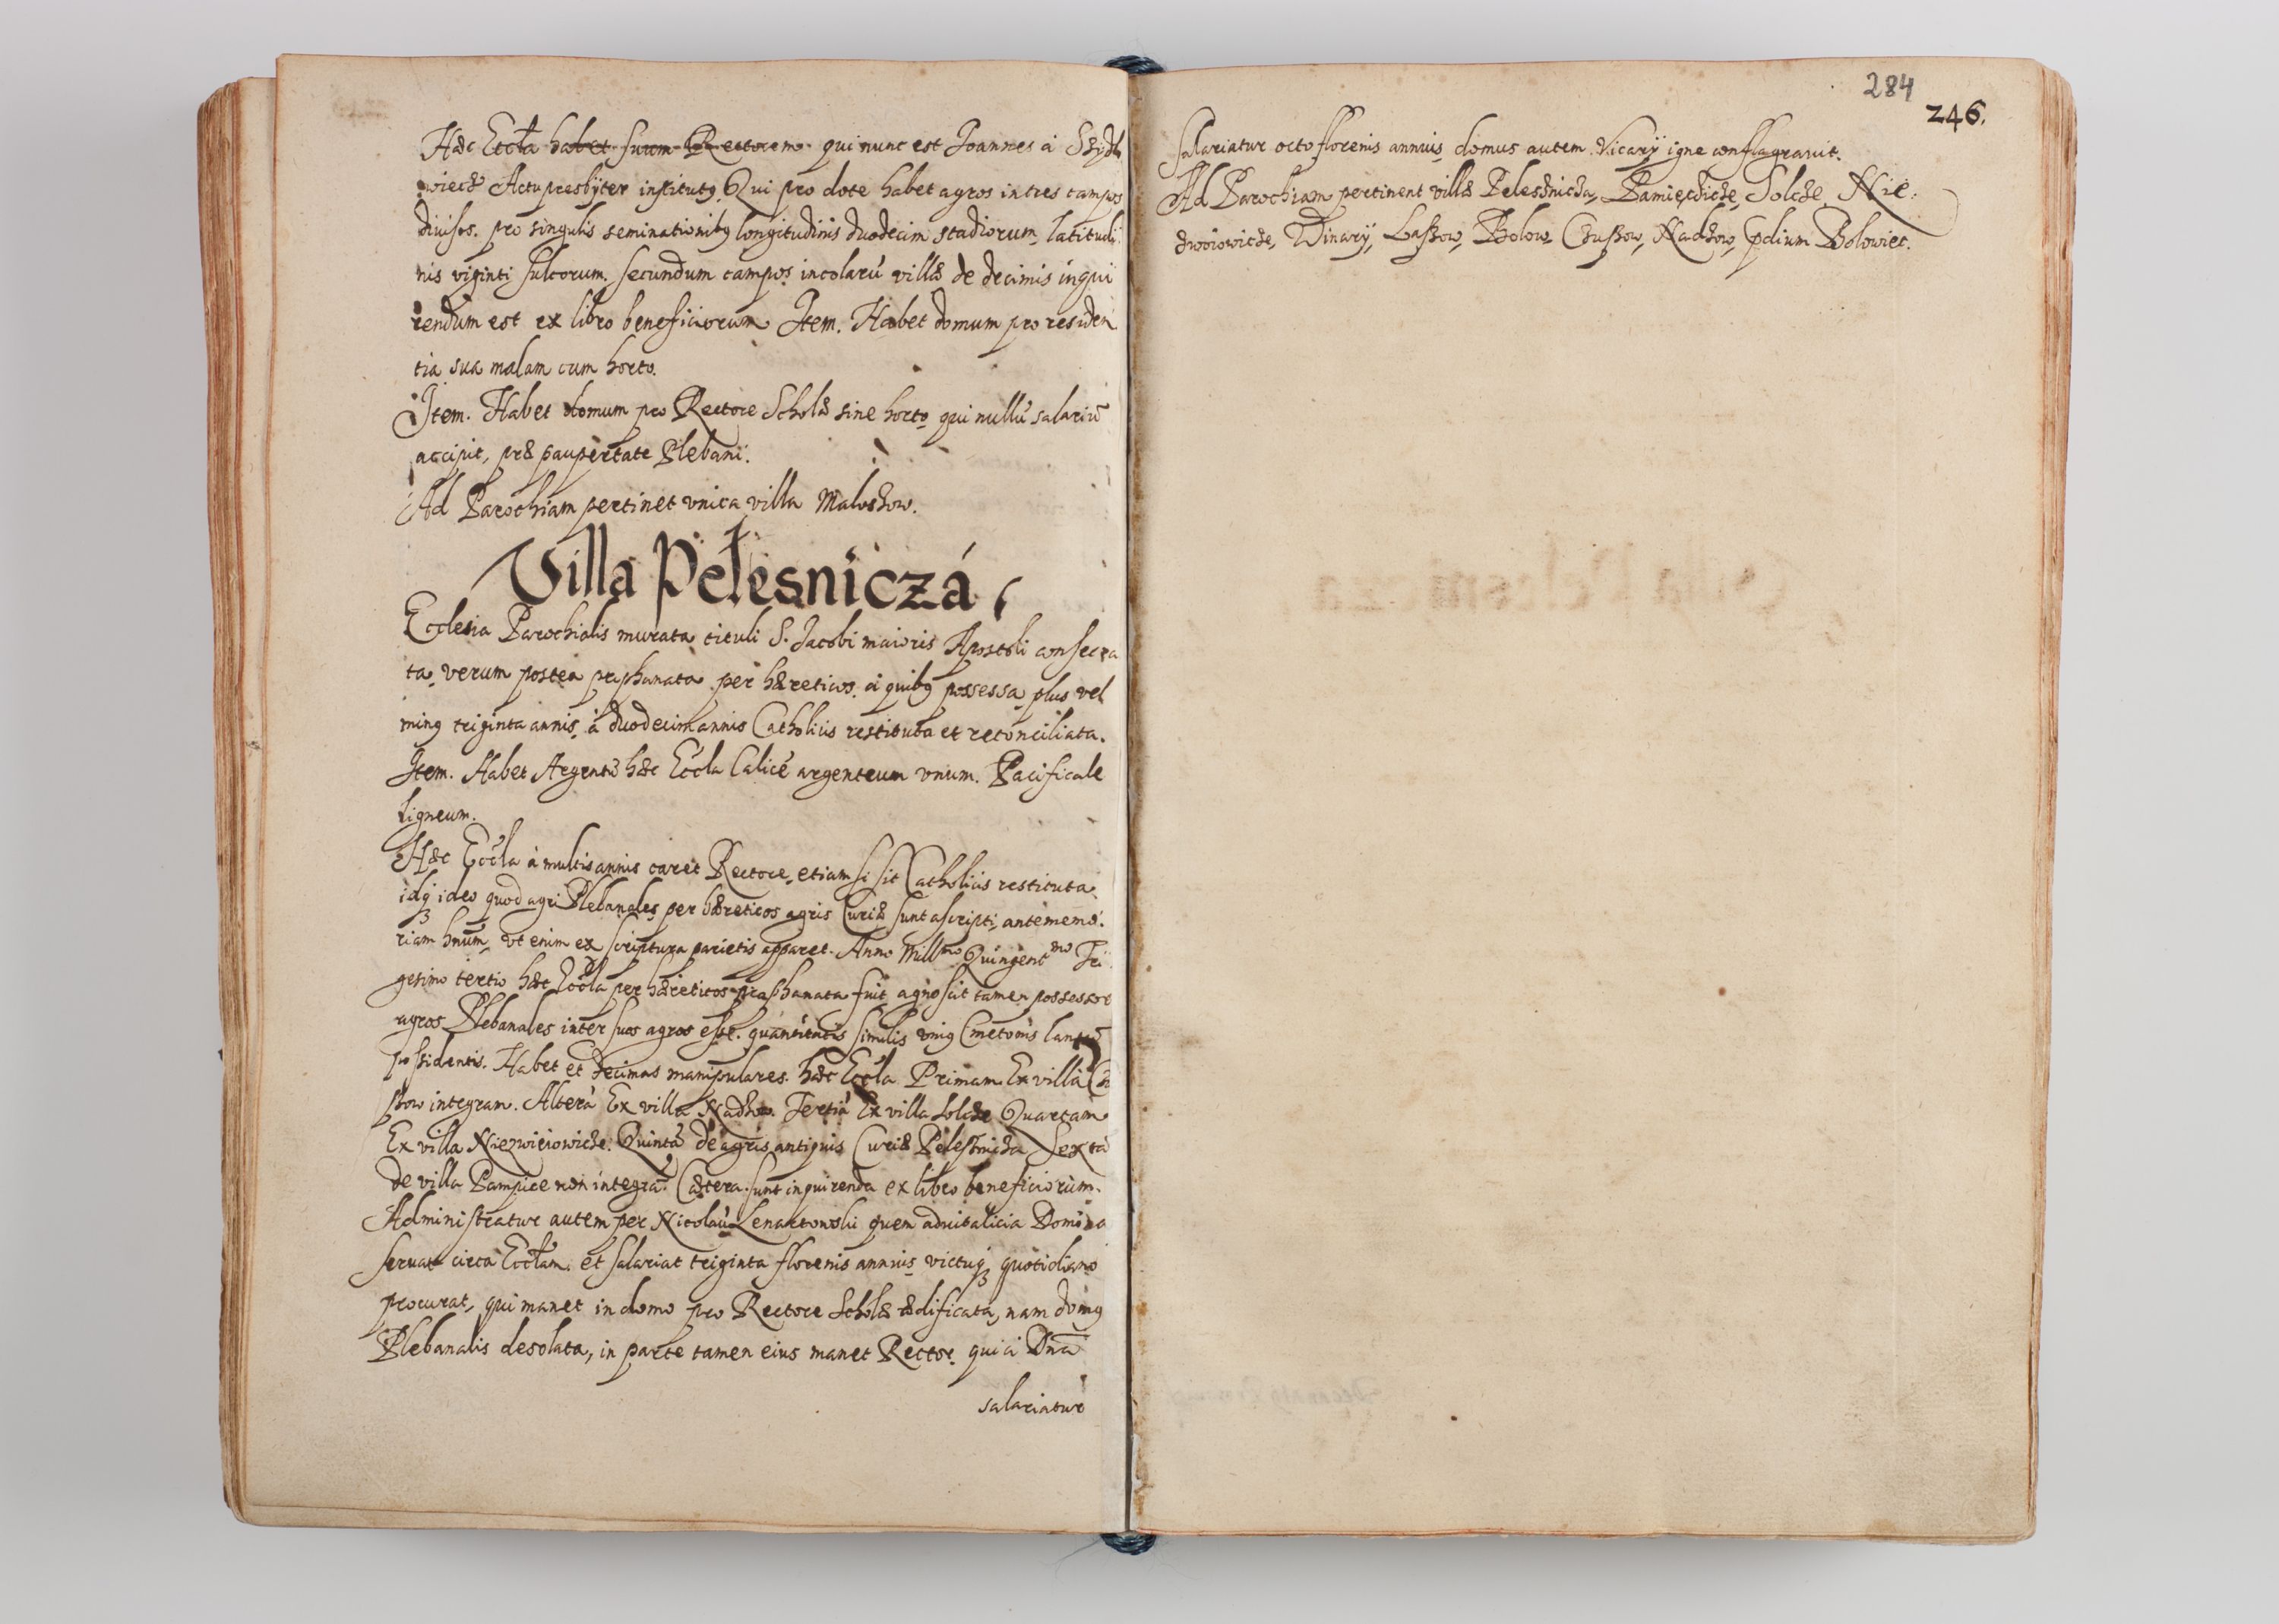 Hæc Eccła habet suum Rectorem qui nunc est Joannes à Szydło
wiecz Actu presbyter institutq Qui pro dote habet agros in tres campos
diuisos. pro singulis seminationibq longitudinis duodecim stadiorum, latitudi
nis viginti sulcorum. secundum campos incolarũ villæ de decimis inqui
rendum est ex libro beneficiorum Item. Habet domum pro residen
tia sua malam cum horto.
Item. Habet domum pro Rectore Scholæ sine horto qui nullũ salariũ
accipit, præ paupertate Plebani.
Ad Parochiam pertinet vnica villa Maloszow.
Villa Pełesniczá
Ecclesia Parochialis murata tituli S. Jacobi maioris Apostoli consecra
ta, verum postea prophanata per hæreticos. à quibq possessa plus vel
minq triginta annis, à duodecim annis Catholicis restituta et reconciliata.
Item. Habet Argenti hæc Eccla Calicẽ argenteum vnum. Pacificale
ligneum.
Hæc Eccla à multis annis caret Rectore, etiam si sit Catholicis restituta
idq ideo quod agri Plebanales per hæreticos agris Curiæ sunt ascripti, ante memo
riam hnũm, vt enim ex scriptura parietis apparet. Anno Mill mo Quingent mo Tri
gesimo tertio hæc Eccla per hæreticos prophanata fuit agnoscit tamen possessor
agros Plebanales inter suos agros esse. quantitatis similis vniq Cmetonis laneũ
possidentis. Habet et decimas manipulares. hæc Eccla Primam Ex villa Cu
szow integram. Alterã Ex villa Nadzow. Tertiã Ex villa Solcze Quartam
Ex villa Niezwioiowicze. Quintã de agris antiquis Curiæ Pelesznicza Sextã
de villa Pampice non integrã. Cætera sunt inquirenda ex libro beneficiorum.
Administratur autem per Nicolaũ Lenartowski quem aduitalicia Domina
seruat circa Ecclam. et salariat triginta florenis annuis victuq quotidiano
procurat, qui manet in domo pro Rectore Scholæ ædificata, nam domq
Plebanalis desolata, in parte tamen eius manet Rector qui à Dnã
salariatur
284
246.
Salariatur octo florenis annuis domus autem Vicarij igne conflagrauit.
Ad Parochiam pertinent villæ Pelesznicza, Pamięczicze, Solcze, Nie
zwoiowicze, Winary, Laszow, Bolow, Czuszow, Nadzow, Pdium Bolowiec.